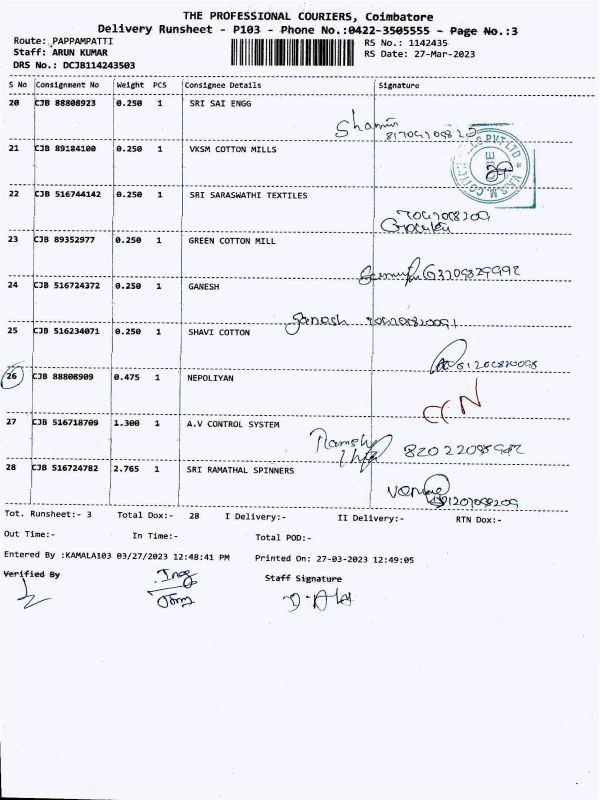 THE PROFESSIONAL COURIERS, Coimbatore
Delivery Runsheet - P103 - Phone No.:0422-3505555 - Page No.:3
Route: PAPPAMPATTI RS No.: 1142435
Staff: ARUN KUMAR RS Date: 27-Mar-2023
DRS No.: DCJB114243503
S No Consignment No Weight PCS Consignee Details Signature
20 CJB 88808923 0.250 1 SRI SAI ENGG
21 CJB 89184100 0.250 1 VKSM COTTON MILLS
22 CJB 516744142 0.250 1 SRI SARASWATHI TEXTILES
23 CJB 89352977 0.250 1 GREEN COTTON MILL
24 CJB 516724372 0.250 1 GANESH
Ganesh
25 CJB 516234071 0.250 1 SHAVI COTTON
26 CJB 88808909 0.475 1 NEPOLIYAN
27 CJB 516718709 1.300 1 A.V CONTROL SYSTEM
28 CJB 516724782 2.765 1 SRI RAMATHAL SPINNERS
Tot. Runsheet:- 3 Total Dox:- 28 I Delivery:- II Delivery:- RTN Dox:-
Out Time:- In Time:- Total POD:-
Entered By :KAMALA103 03/27/2023 12:48:41 PM Printed On: 27-03-2023 12:49:05
Verified By Staff Signature